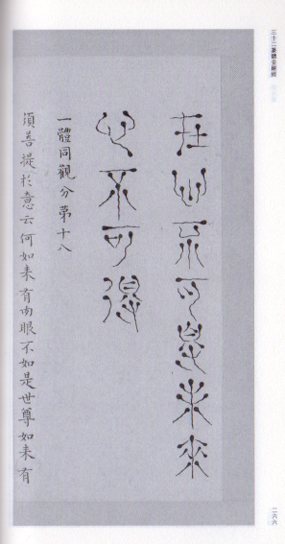 三十二篆體金剛經
在心不可得未來
心不可得
一體同觀分第十八
須菩提於意云何如来有肉眼不如是世尊如来有
二六六